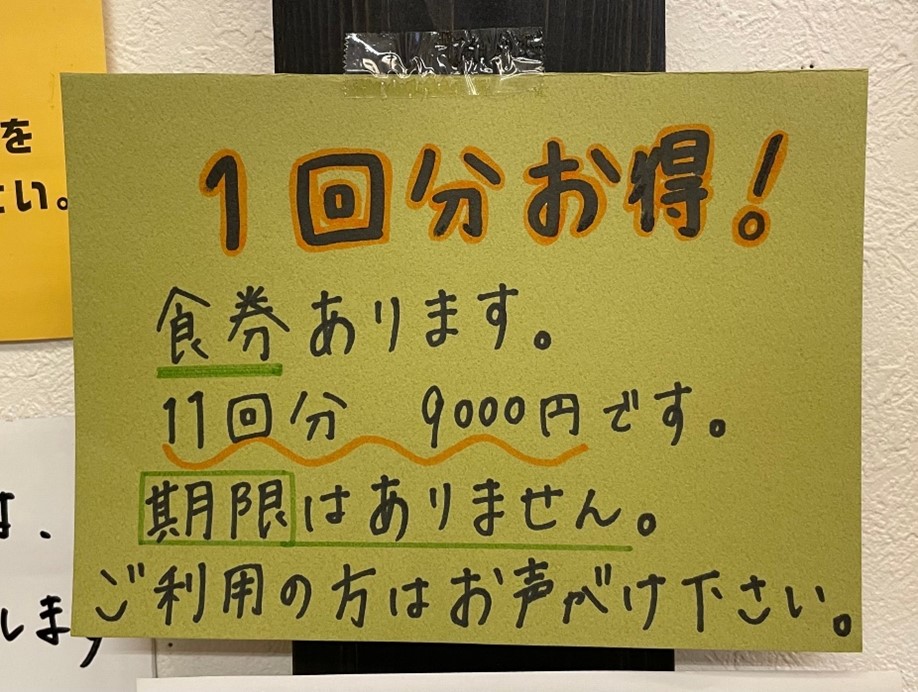 1回分お得!
食券あります。
11回分 9000円です。
期限はありません。
ご利用の方はお声がけ下さい。
を
さい。
します